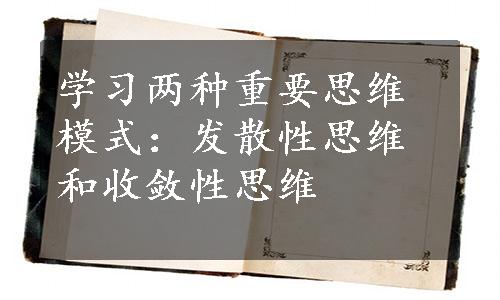 学习两种重要思维
模式：发散性思维
和收敛性思维